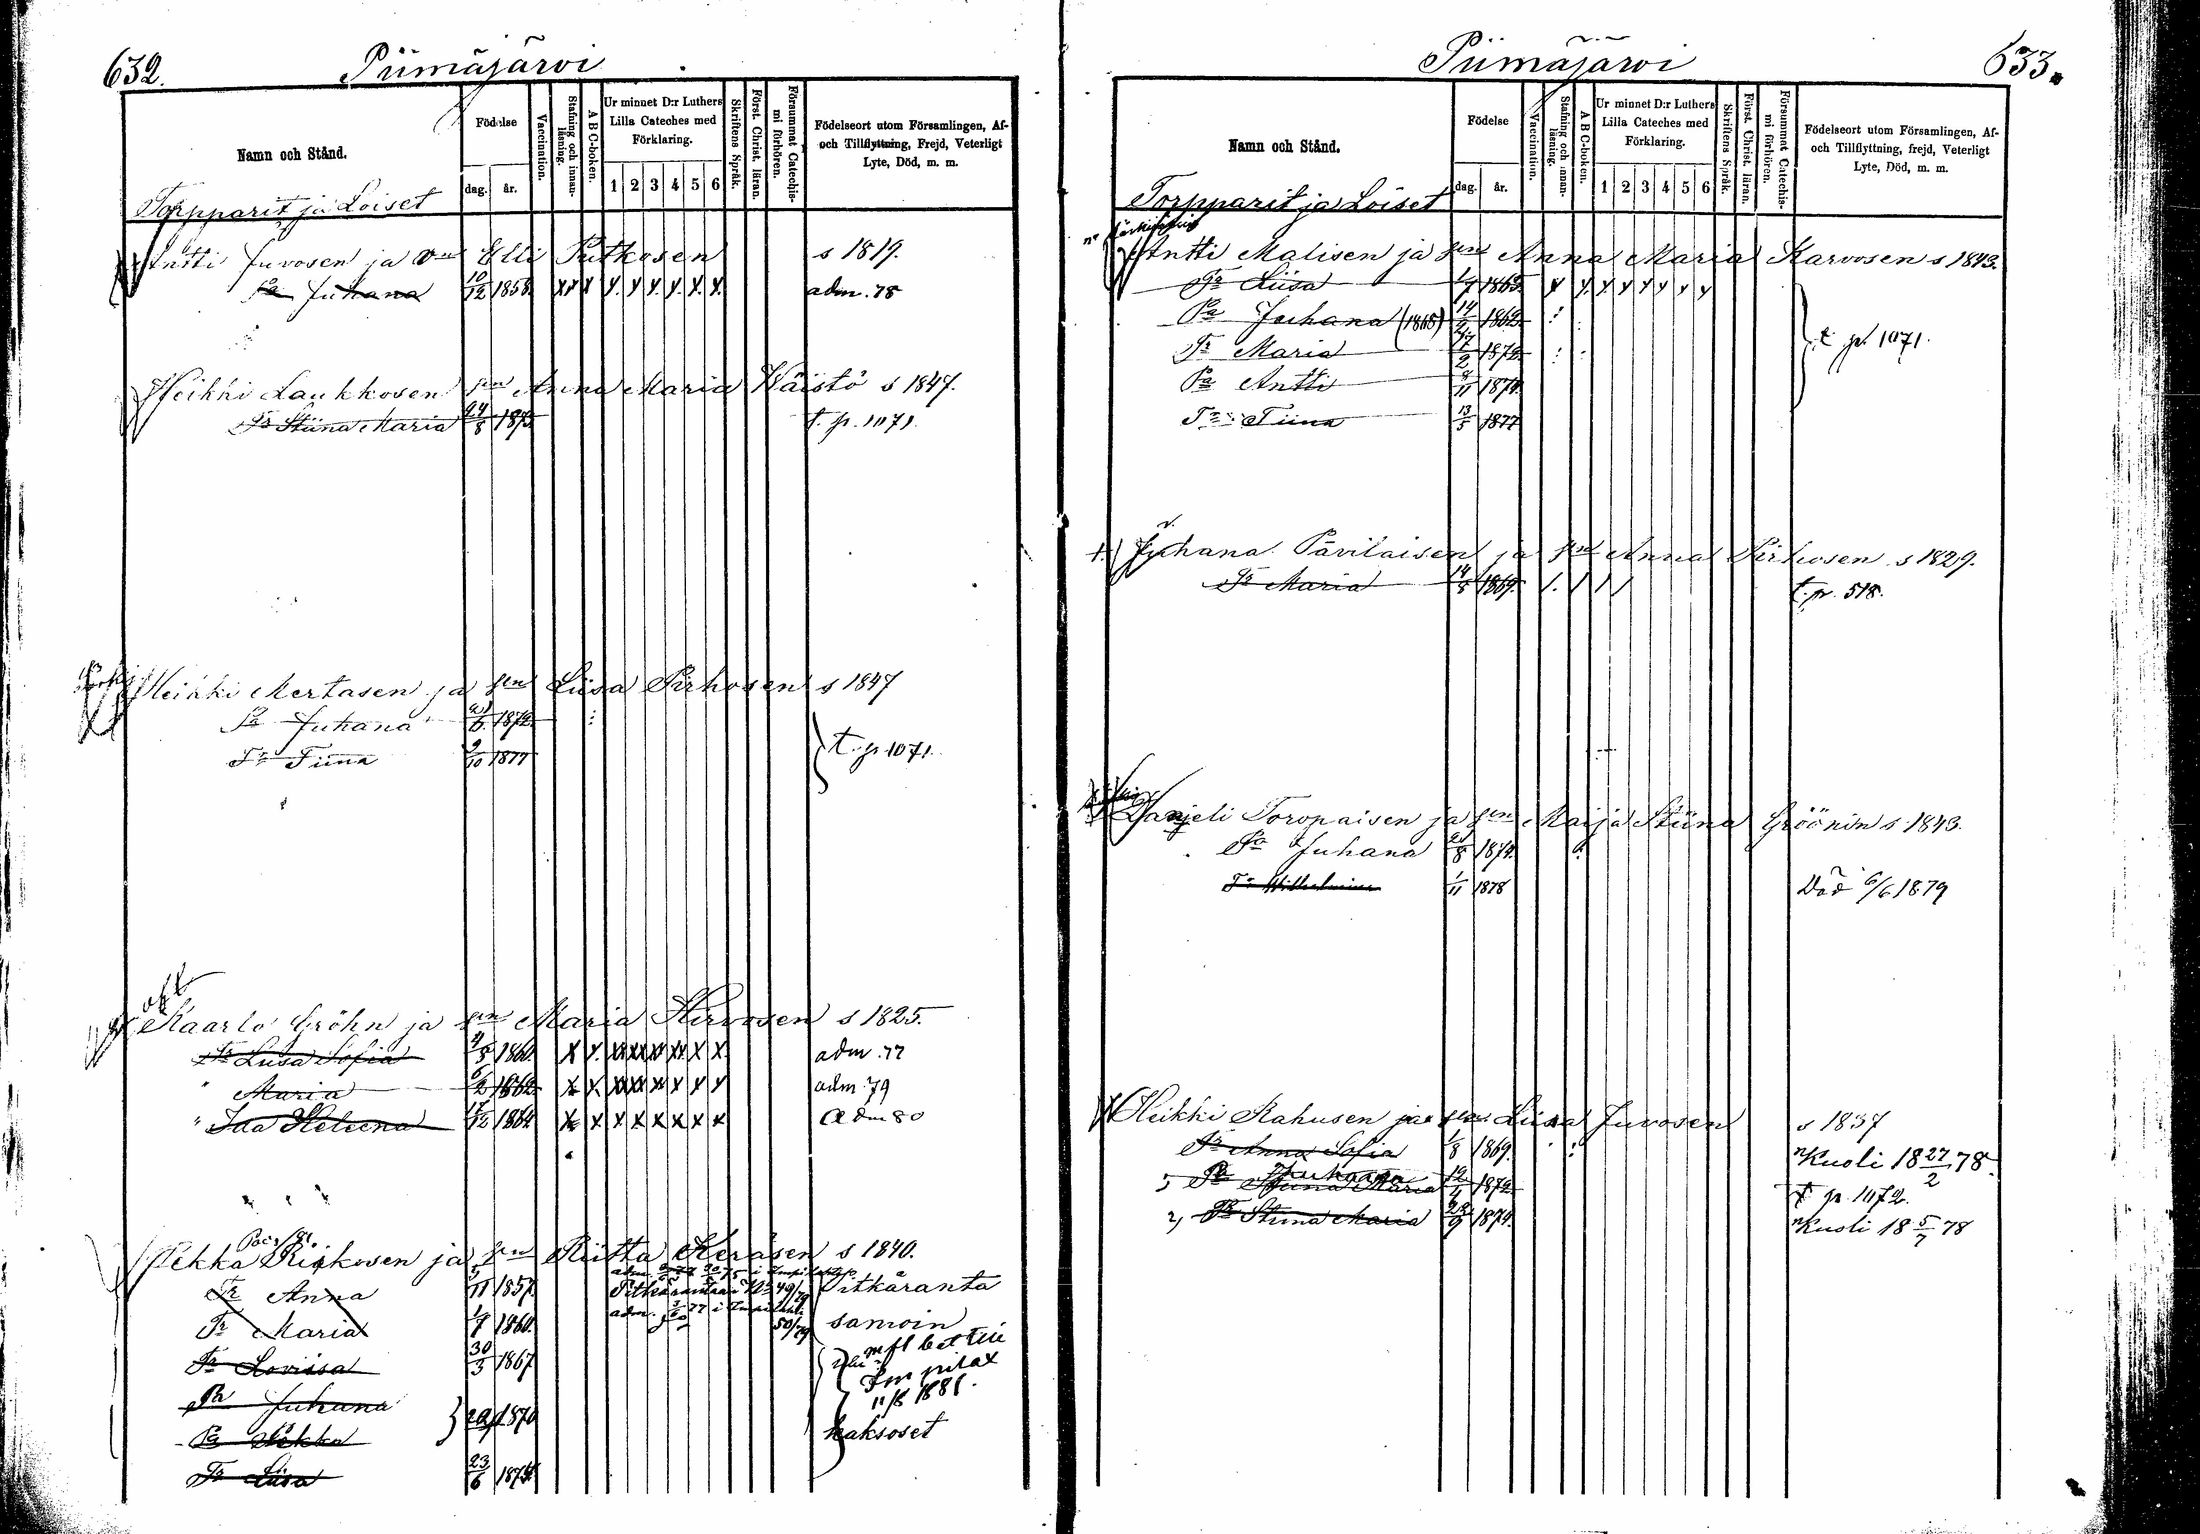 632.
Piimäjärvi
Namn och Stånd.
Födelse
dag.
år.
Vaccination.
Stafning och innan-läsning.
A B C-boken.
Ur minnet D:r Luthers
Lilla Cateches med
Förklaring.
1 2 3 4 5 6
Skriftens Språk.
Först. Christ. läran.
Försummat Catechis-mi förhören.
Födelseort utom Församlingen, Af-
och Tillflyttning, Frejd, Veterligt
Lyte, Död, m. m.
Torpparit ja Loiset
Antti Juvosen ja Elli Putkosen s 1819.
Pa Juhana 10/12 1858 adm. 78
Heikki Laukkosen sen Anna Maria Väistö s 1847.
Tr Stiina Maria 24/8 1875 t. p. 1071.
Heikki Mertasen ja sen Liisa Pirhosen s 1847
Pa Juhana 1872.
Tr Tiina 9/10 1877
t. p 1071.
Kaarlo Gröhn ja sen Maria Hirvosen s 1825.
Tr Liisa Sofia 1860 adm. 77
" Maria 1862 adm. 79
" Ida Heleena 1864 adm 80
Pekka Riikosen ja sen Riitta Keräsen s 1840.
Tr Anna 1857 Pitkäranta
Tr Maria 1/7 1860. samoin
50/79
Tr Loviisa 30/3 1867
Pa Juhana
Pa Pekka 1870 kaksoset
Tr Liisa 23/6 1875
11/8 1881.
633.
Piimäjärvi
Namn och Stånd.
Födelse
dag.
år.
Vaccination.
Stafning och innan-läsning.
A B C-boken.
Ur minnet D:r Luthers
Lilla Cateches med
Förklaring.
1 2 3 4 5 6
Skriftens Språk.
Först. Christ. läran.
Försummat Catechis-mi förhören.
Födelseort utom Församlingen, Af-
och Tillflyttning, frejd, Veterligt
Lyte, Död, m. m.
Torpparit ja Loiset
Antti Malisen ja sen Anna Maria Karvosen s 1843.
Tr Liisa 1/7 1865
Pa Juhana (1868) 1862
Tr Maria 1872
Pa Antti 1874
Tr Tiina 13/5 1877
t. p. 1071.
Juhana Pavilaisen ja sen Anna Pirhosen s 1829.
Tr Maria 14/8 1869. t. p. 518.
Tanjeli Toropaisen ja sen Maija Stiina Gröönin s 1843.
Pa Juhana 1874.
Tr Wilhelmina 1/11 1878 Död 6/6 1879
Heikki Kahusen ja sen Liisa Juvosen s 1837
Tr Anna Sofia 1/8 1869. Kuoli 18 27/2 78.
Pa Juhana 1872 t p. 1072.
2, Tr Stiina Maria 1874. Kuoli 18 5/7 78